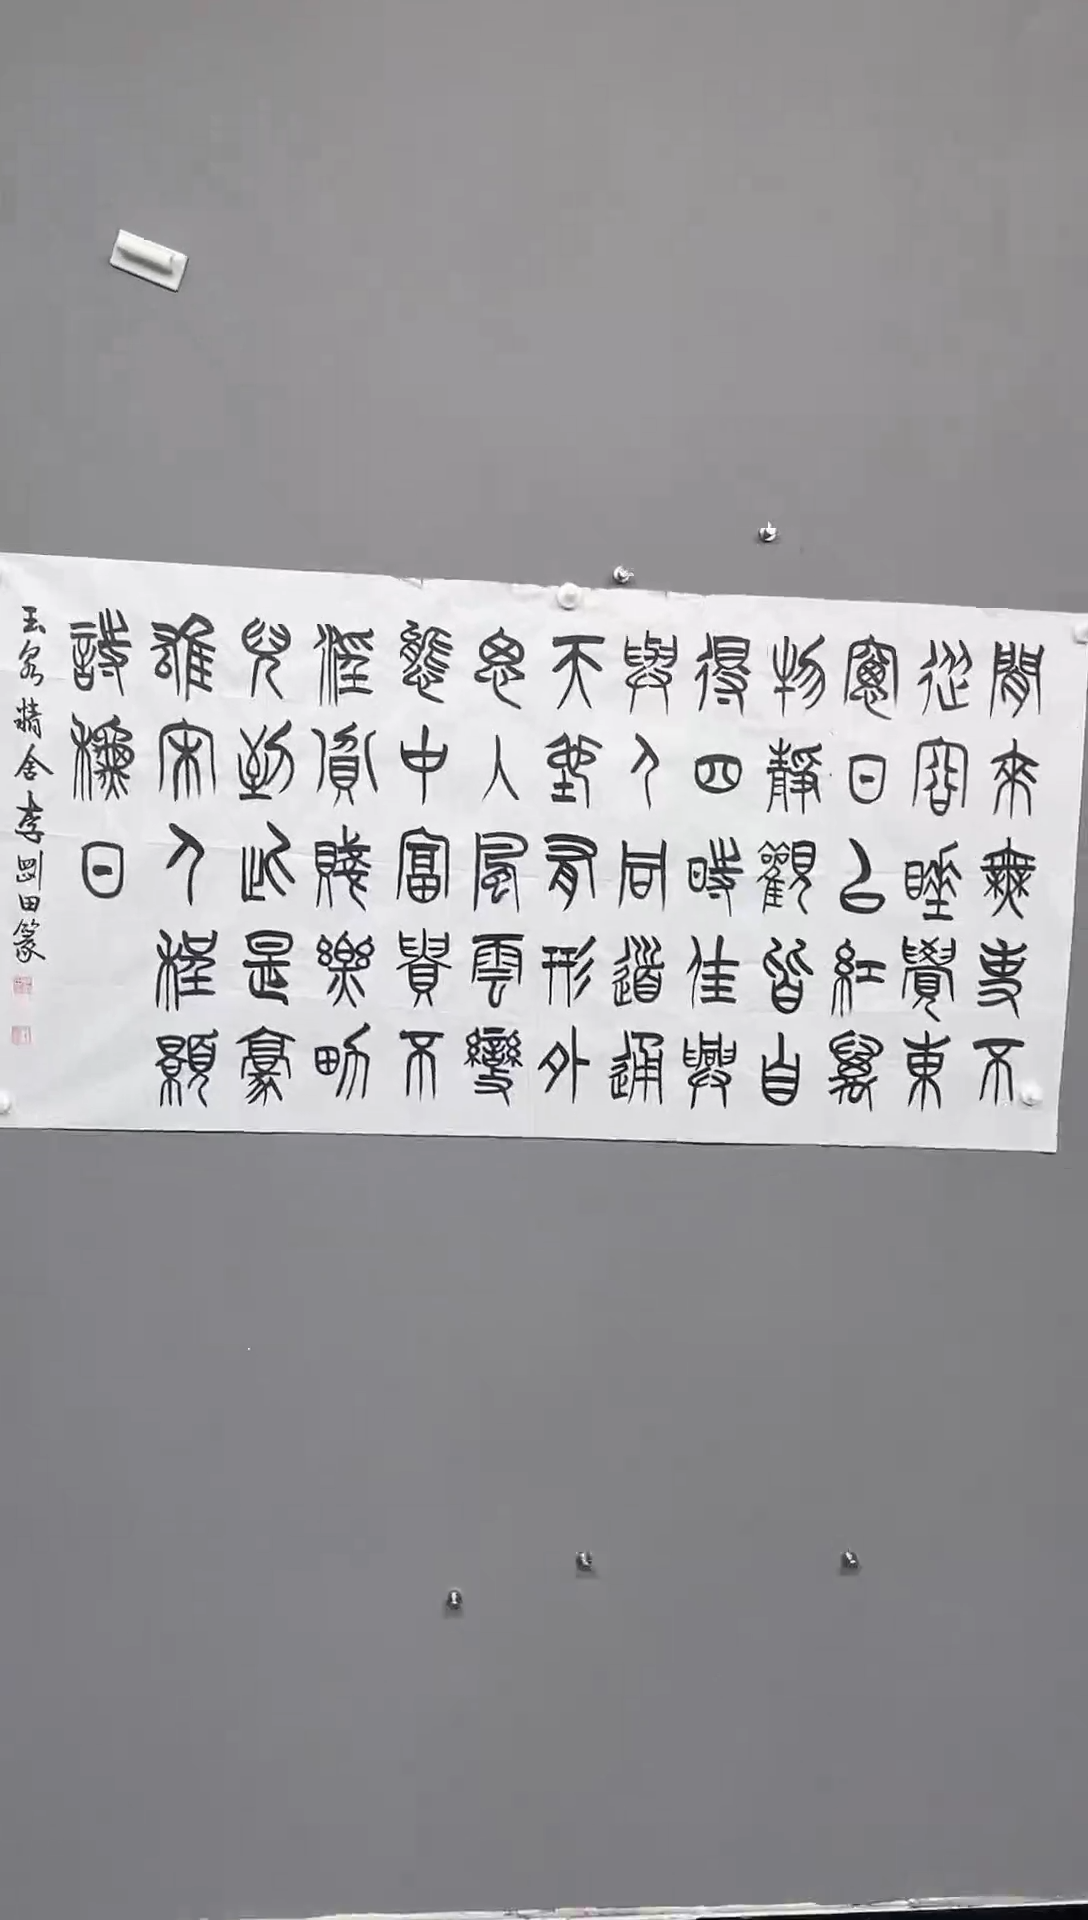 閒來無事不
從容睡覺東
窗日已紅萬
物靜觀皆自
得四時佳興
與人同道通
天地有形外
思入風雲變
態中富貴不
淫貧賤樂男
兒到此是豪
雄宋人程顥
詩秋日
玉泉精舍李剛田篆